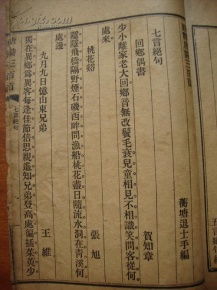 蘅塘退士手編
七言絕句
回鄉偶書
賀知章
少小離家老大回鄉音無改鬢毛衰兒童相見不相識笑問客從何
處來
桃花谿
張旭
隱隱飛橋隔野煙石磯西畔問漁船桃花盡日隨流水洞在青溪何
處邊
九月九日憶山東兄弟
王維
獨在異鄉爲異客每逢佳節倍思親遙知兄弟登高處徧插茱萸少